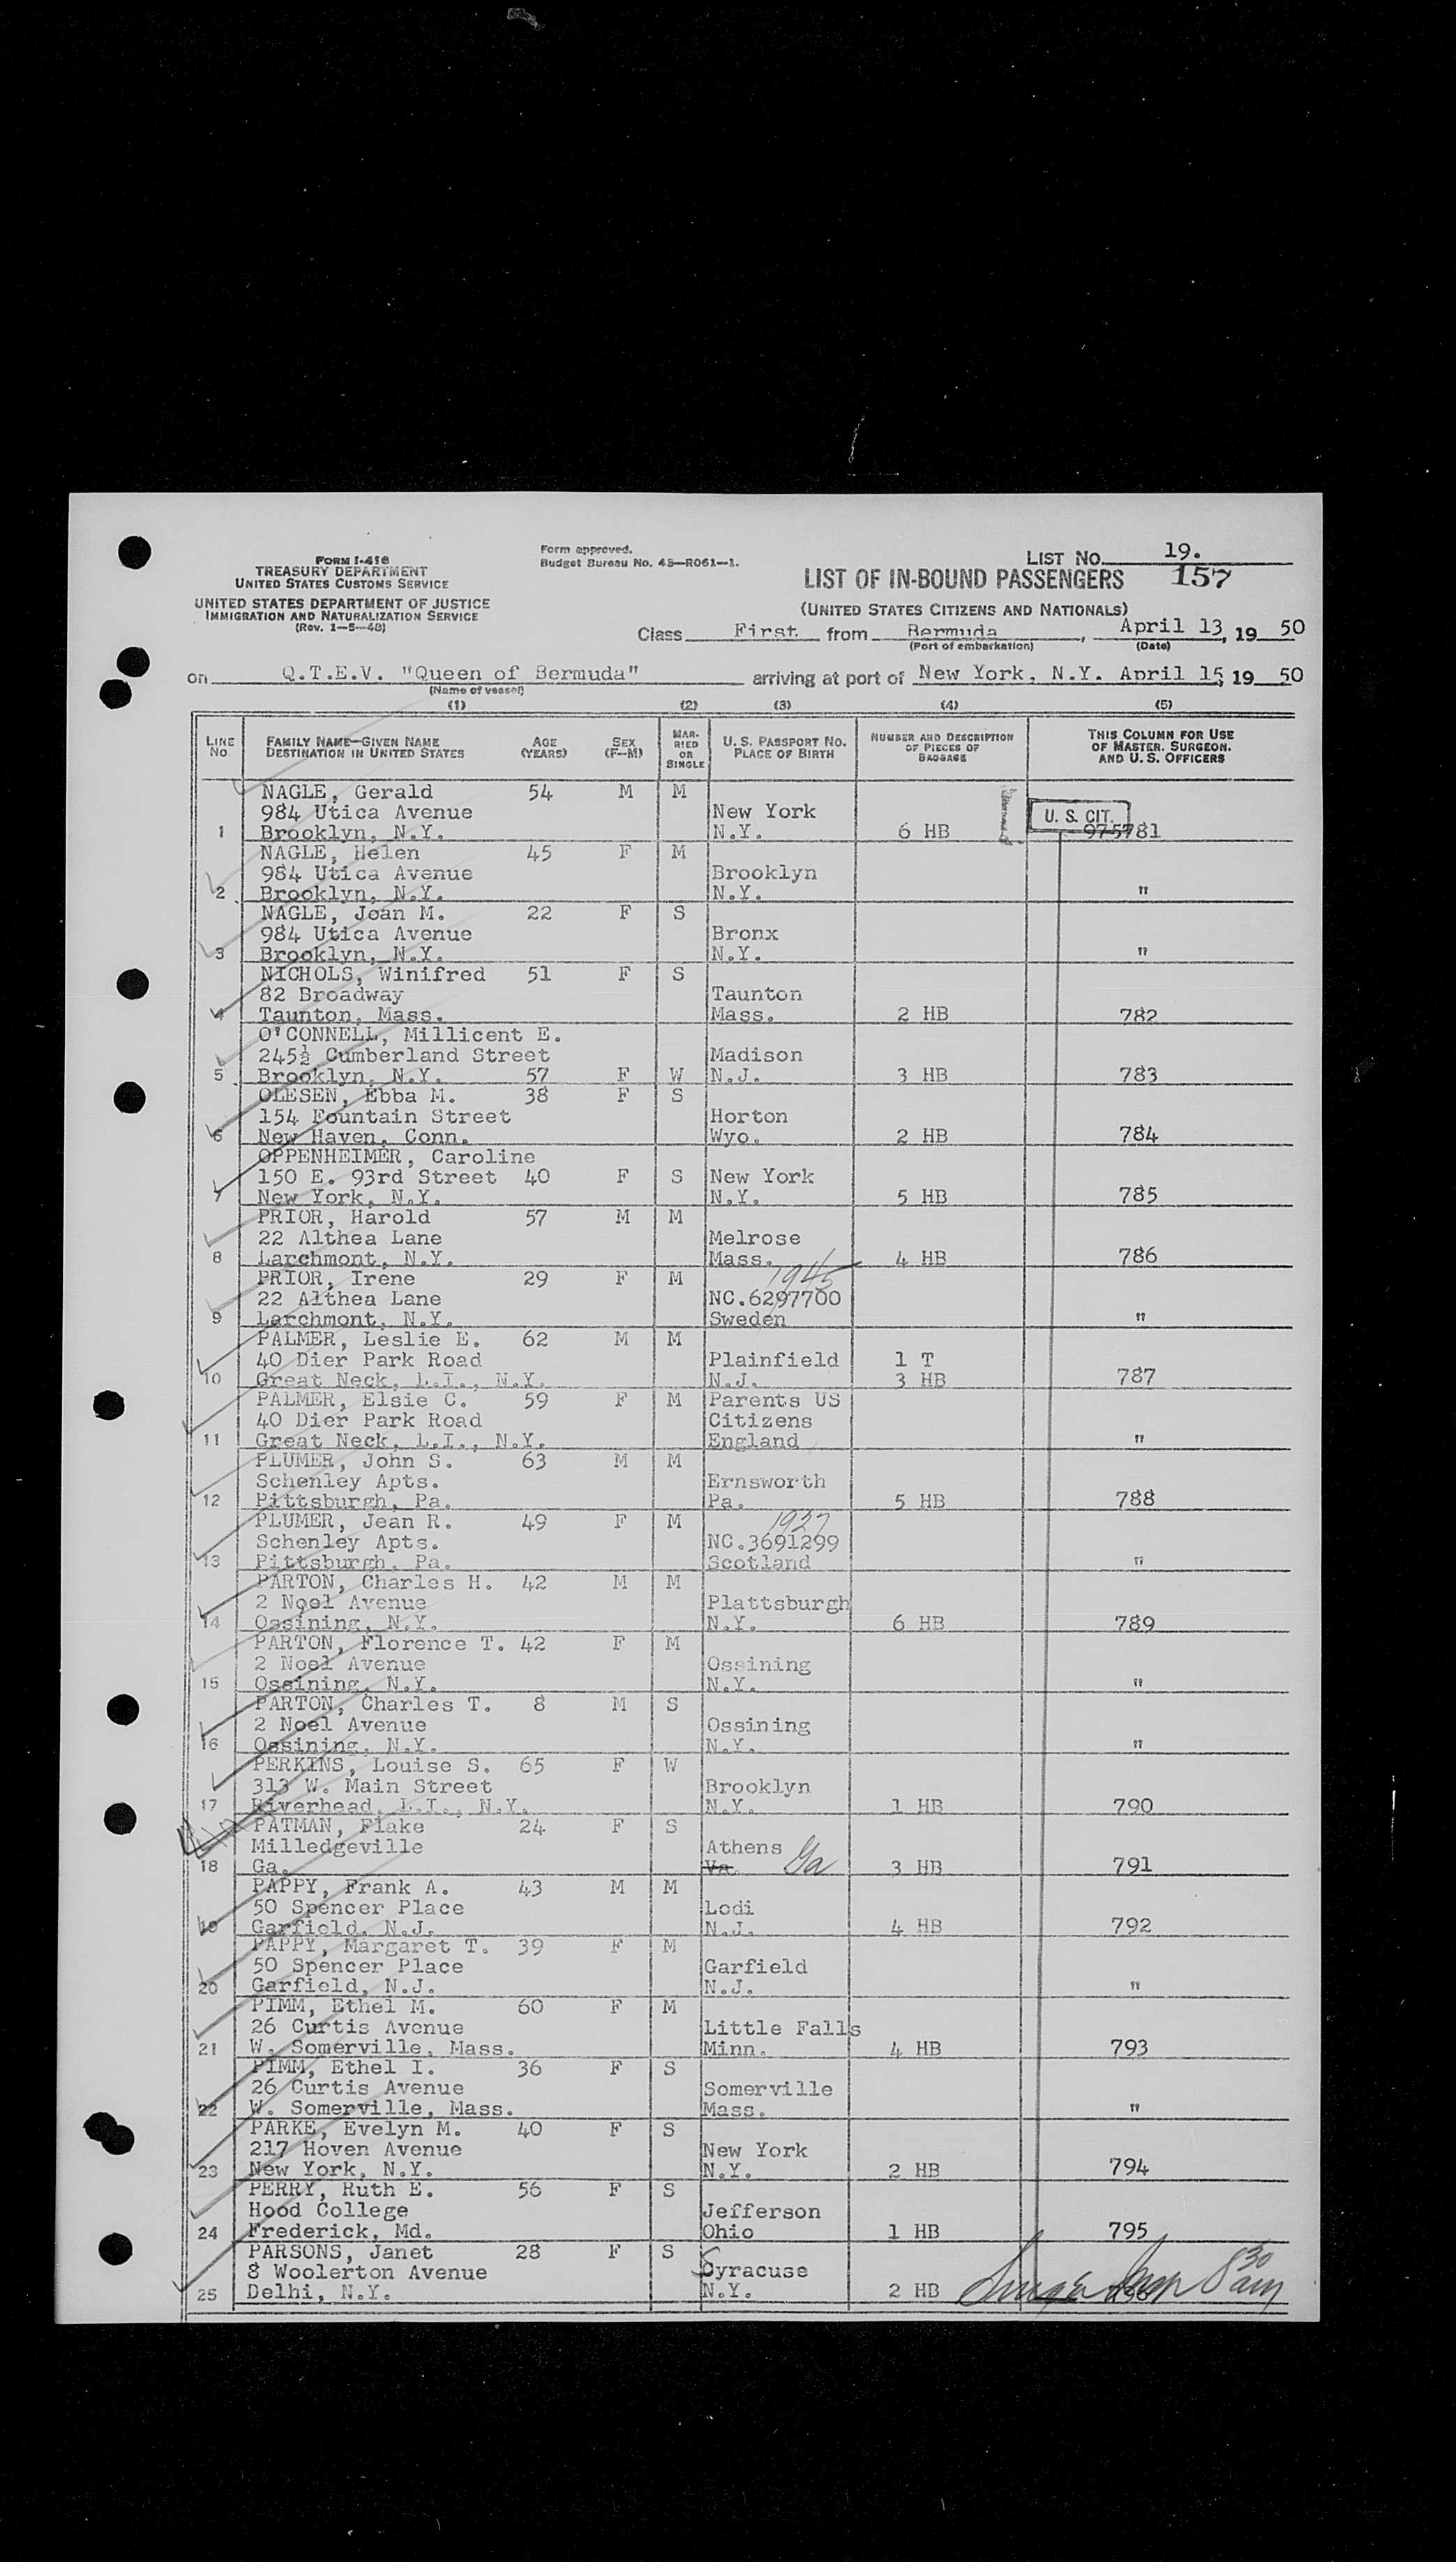 FORM I-418
TREASURY DEPARTMENT
UNITED STATES CUSTOMS SERVICE
UNITED STATES DEPARTMENT OF JUSTICE
IMMIGRATION AND NATURALIZATION SERVICE
(Rev. 1-5-48)
Form approved.
Budget Bureau No. 43-R061-1.
LIST NO. 19.
LIST OF IN-BOUND PASSENGERS 157
(UNITED STATES CITIZENS AND NATIONALS)
Class First from Bermuda, April 13, 19 50
(Port of embarkation) (Date)
on Q.T.E.V. "Queen of Bermuda" arriving at port of New York, N.Y. April 15, 19 50
(Name of vessel)
(1) (2) (3) (4) (5)
LINE NO. FAMILY NAME—GIVEN NAME DESTINATION IN UNITED STATES AGE (YEARS) SEX (F-M) MARRIED OR SINGLE U. S. PASSPORT NO. PLACE OF BIRTH NUMBER AND DESCRIPTION OF PIECES OF BAGGAGE THIS COLUMN FOR USE OF MASTER, SURGEON, AND U. S. OFFICERS
NAGLE, Gerald 54 M M
984 Utica Avenue New York U. S. CIT.
1 Brooklyn, N.Y. N.Y. 6 HB 975781
NAGLE, Helen 45 F M
984 Utica Avenue Brooklyn
2 Brooklyn, N.Y. N.Y. "
NAGLE, Joan M. 22 F S
984 Utica Avenue Bronx
3 Brooklyn, N.Y. N.Y. "
NICHOLS, Winifred 51 F S
82 Broadway Taunton
4 Taunton, Mass. Mass. 2 HB 782
O'CONNELL, Millicent E.
245½ Cumberland Street Madison
5 Brooklyn, N.Y. 57 F W N.J. 3 HB 783
OLESEN, Ebba M. 38 F S
154 Fountain Street Horton
6 New Haven, Conn. Wyo. 2 HB 784
OPPENHEIMER, Caroline
150 E. 93rd Street 40 F S New York
7 New York, N.Y. N.Y. 5 HB 785
PRIOR, Harold 57 M M
22 Althea Lane Melrose
8 Larchmont, N.Y. Mass. 4 HB 786
PRIOR, Irene 29 F M 1945
22 Althea Lane NC.6297700
9 Larchmont, N.Y. Sweden "
PALMER, Leslie E. 62 M M
40 Dier Park Road Plainfield 1 T
10 Great Neck, L.I., N.Y. N.J. 3 HB 787
PALMER, Elsie C. 59 F M Parents US
40 Dier Park Road Citizens
11 Great Neck, L.I., N.Y. England "
PLUMER, John S. 63 M M
Schenley Apts. Ernsworth
12 Pittsburgh, Pa. Pa. 5 HB 788
PLUMER, Jean R. 49 F M 1937
Schenley Apts. NC.3691299
13 Pittsburgh, Pa. Scotland "
PARTON, Charles H. 42 M M
2 Noel Avenue Plattsburgh
14 Ossining, N.Y. N.Y. 6 HB 789
PARTON, Florence T. 42 F M
2 Noel Avenue Ossining
15 Ossining, N.Y. N.Y. "
PARTON, Charles T. 8 M S
2 Noel Avenue Ossining
16 Ossining, N.Y. N.Y. "
PERKINS, Louise S. 65 F W
313 W. Main Street Brooklyn
17 Riverhead, L.I., N.Y. N.Y. 1 HB 790
PATMAN, Flake 24 F S
Milledgeville Athens
18 Ga. Va. Ga 3 HB 791
PAPPY, Frank A. 43 M M
50 Spencer Place Lodi
19 Garfield, N.J. N.J. 4 HB 792
PAPPY, Margaret T. 39 F M
50 Spencer Place Garfield
20 Garfield, N.J. N.J. "
PIMM, Ethel M. 60 F M
26 Curtis Avenue Little Falls
21 W. Somerville, Mass. Minn. 4 HB 793
PIMM, Ethel I. 36 F S
26 Curtis Avenue Somerville
22 W. Somerville, Mass. Mass. "
PARKE, Evelyn M. 40 F S
217 Hoven Avenue New York
23 New York, N.Y. N.Y. 2 HB 794
PERRY, Ruth E. 56 F S
Hood College Jefferson
24 Frederick, Md. Ohio 1 HB 795
PARSONS, Janet 28 F S
8 Woolerton Avenue Syracuse
25 Delhi, N.Y. N.Y. 2 HB 796 8 30 am